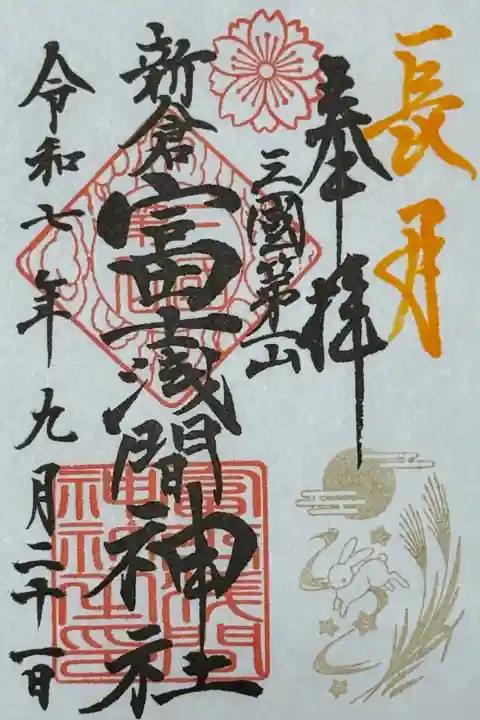 長月
奉拝
三國第一山
新倉富士浅間神社
令和七年九月二十一日